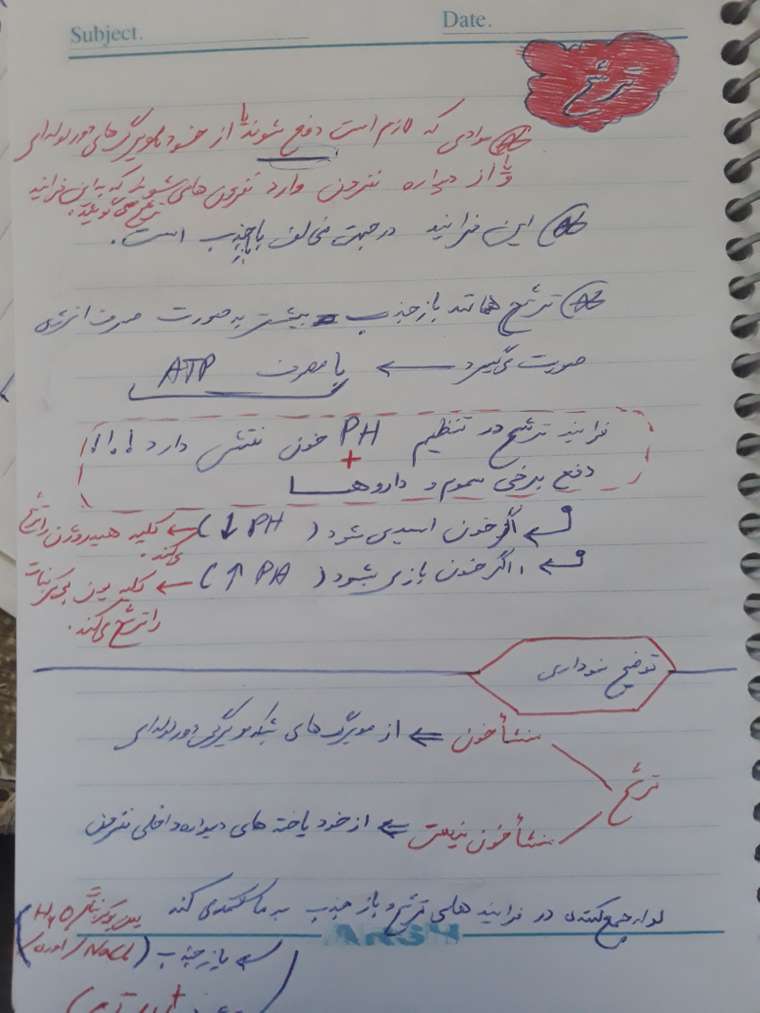 Subject.
Date.
ترشح
موادی که لازم است دفع شوند یا از خود مویرگ‌های دور لوله‌ای
و یا از دیواره نفرون وارد نفرون های شوند که به این فرایند
ترشح می گویند.
این فرایند در جهت مخالف بازجذب است.
ترشح همانند بازجذب بیشتر به صورت صرف انرژی
صورت می‌گیرد ← با مصرف ATP
فرایند ترشح در تنظیم PH خون نقش دارد !!!
+
دفع برخی سموم و داروها
اگر خون اسیدی شود (↓ PH) ← کلیه هیدروژن را ترشح
می کند.
اگر خون بازی بشود (↑ PH) ← کلیه یون بی کربنات
را ترشح می کند.
توضیح نموداری
ترشح
منشأ خون ⇐ از مویرگ های شبکه مویرگی دور لوله‌ای
منشأ خون نیست ⇐ از خود یاخته های دیواره داخلی نفرون
لوله جمع کننده در فرایند های ترشح و بازجذب به ما کمک می کند
بازجذب (H₂O
NaCl / اوره)